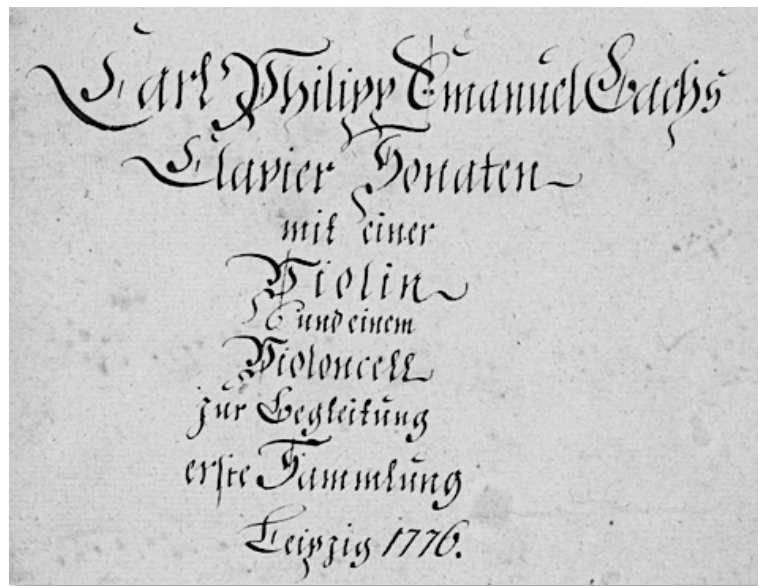 Carl Philipp Emanuel Bachs
Clavier Sonaten
mit einer
Violin
und einem
Violoncell
zur Begleitung
erste Sammlung
Leipzig 1776.